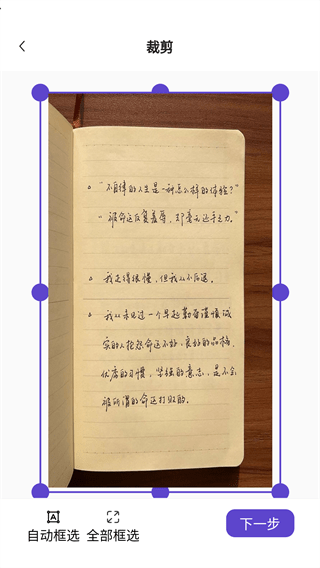 裁剪
。"不自律的人生是一种怎么样的体验?"
"被命运反复羞辱,却毫无还手之力。"
。我走得很慢,但我从不后退。
。我从未见过一个早起勤奋谨慎诚
实的人抱怨命运不好,良好的品格,
优秀的习惯,坚强的意志,是不会
被所谓的命运打败的。
自动框选 全部框选 下一步